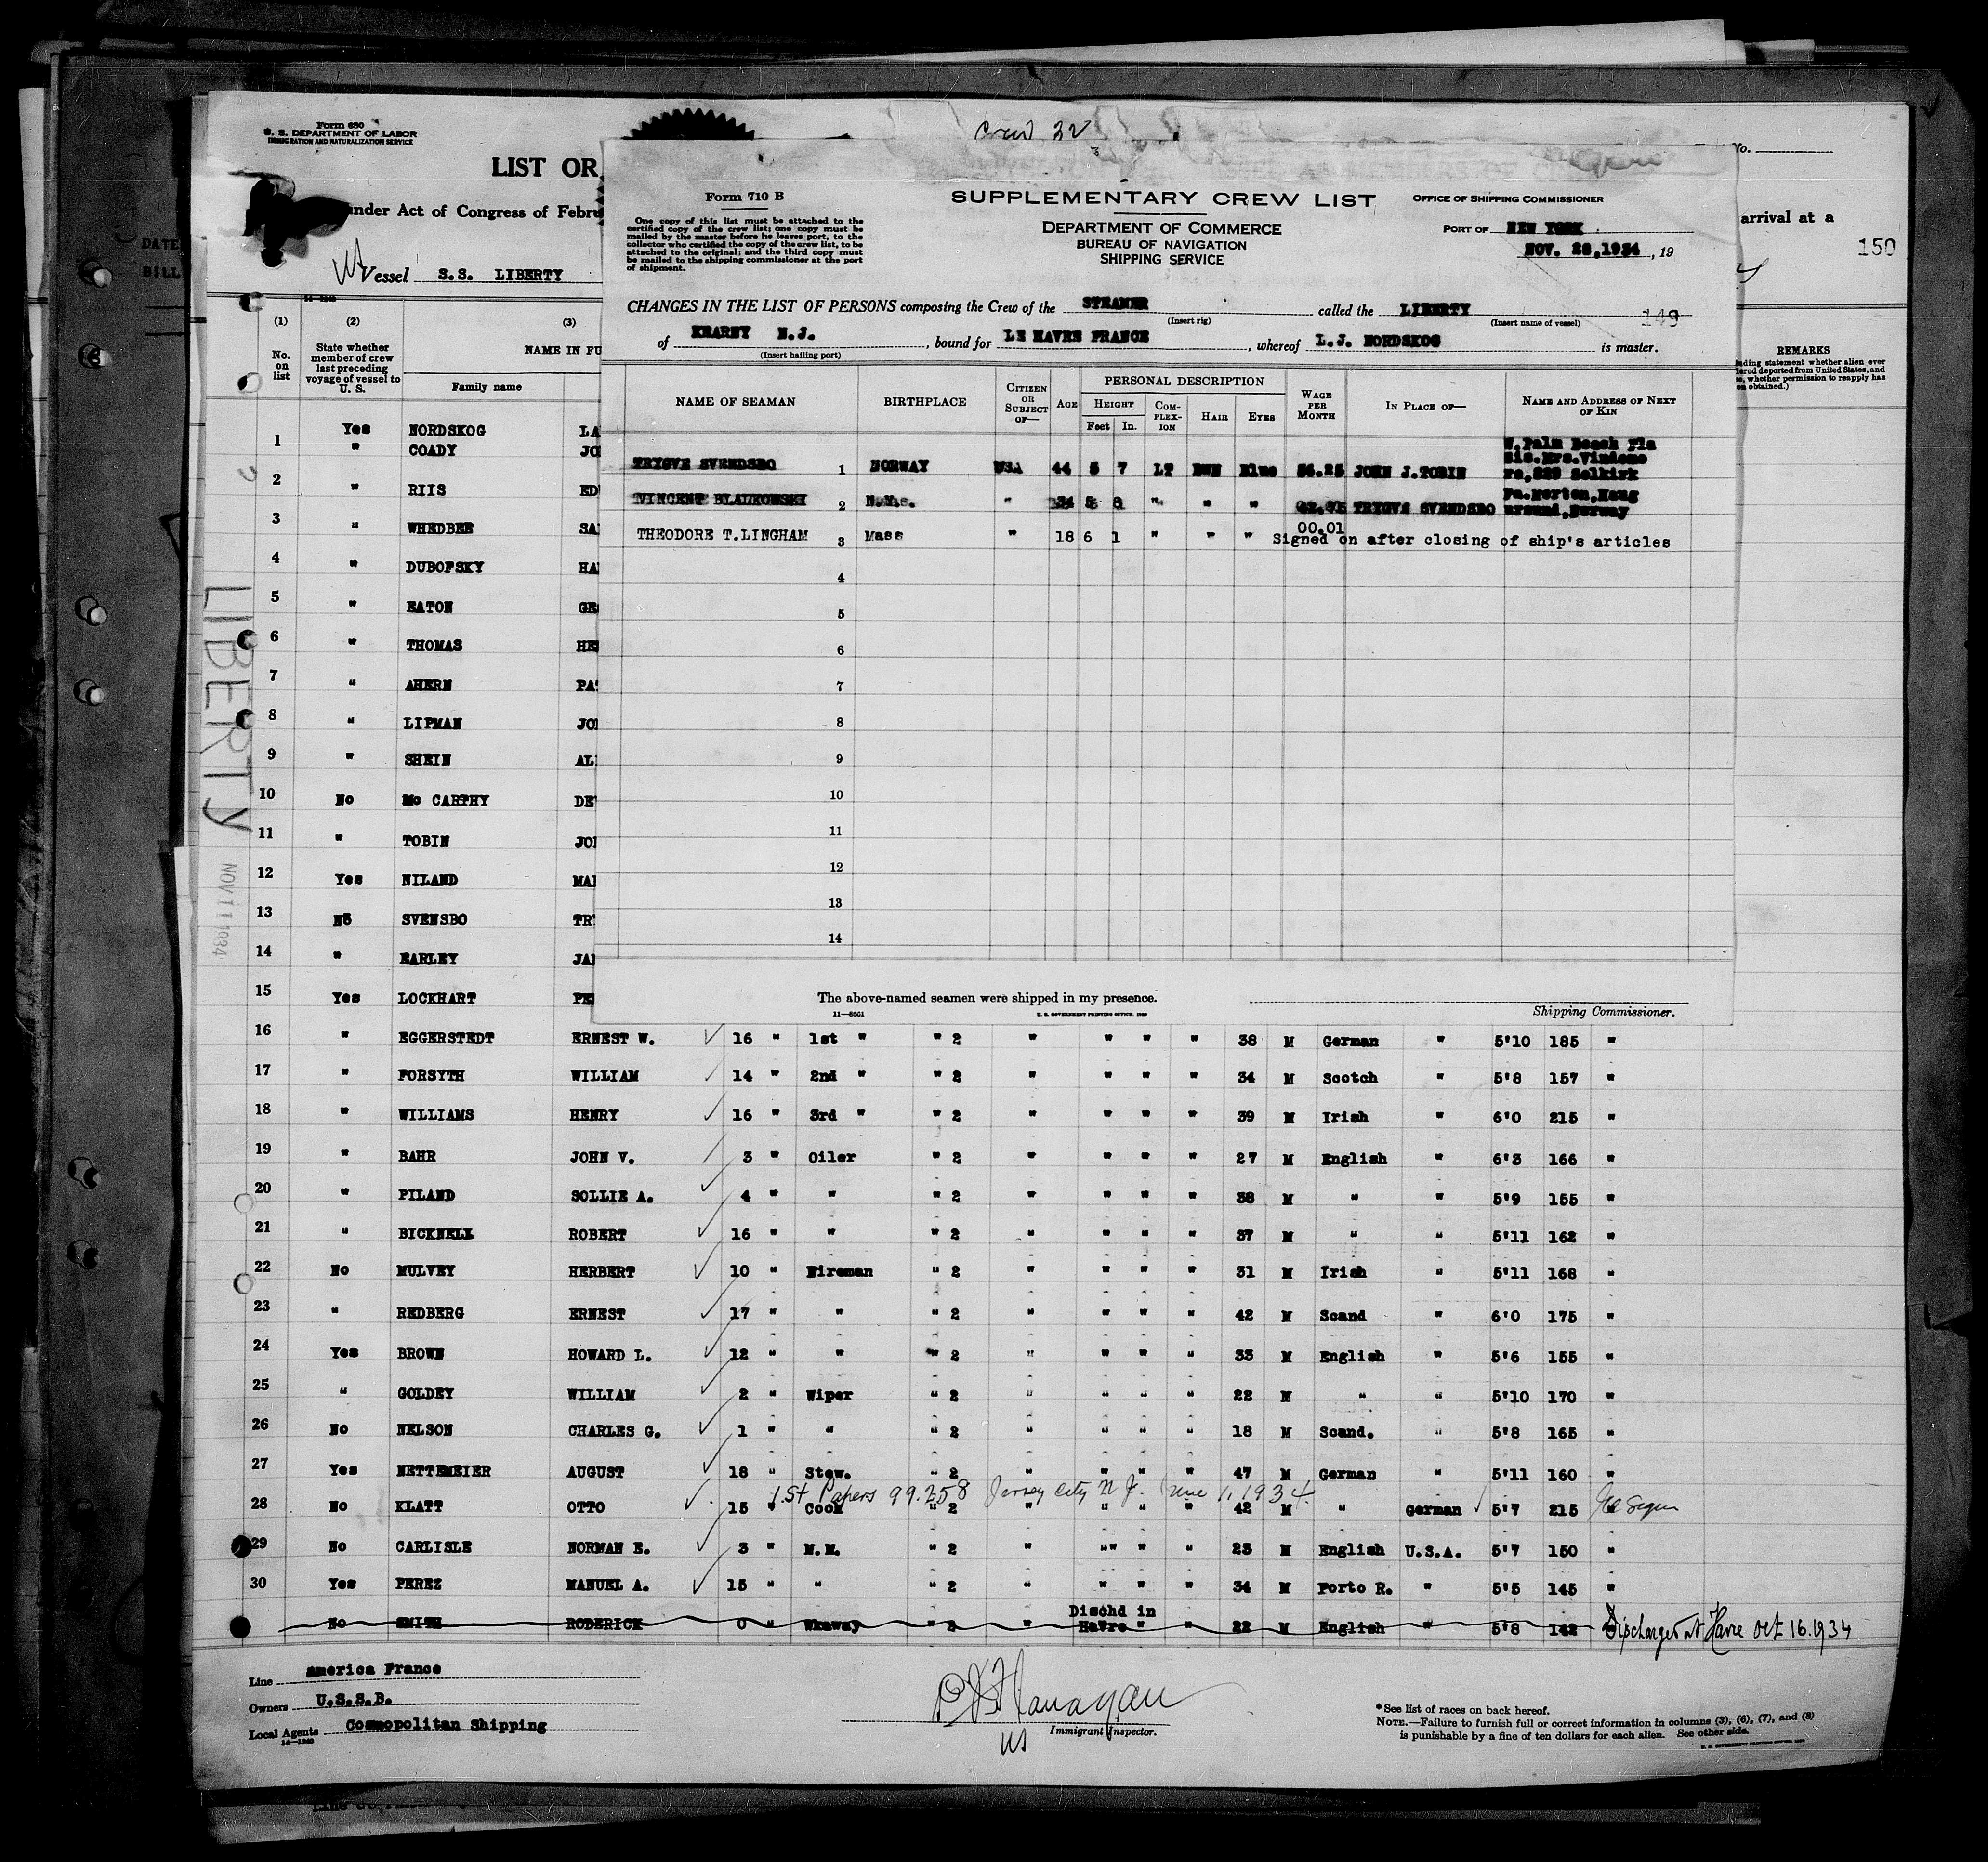 Form 680
U. S. DEPARTMENT OF LABOR
IMMIGRATION AND NATURALIZATION SERVICE
Crew 32
No.
LIST OR
under Act of Congress of Febru
arrival at a
150
Vessel S.S. LIBERTY
14—1240
Form 710 B
One copy of this list must be attached to the
certified copy of the crew list; one copy must be
mailed by the master before he leaves port, to the
collector who certified the copy of the crew list, to be
attached to the original; and the third copy must
be mailed to the shipping commissioner at the port
of shipment.
SUPPLEMENTARY CREW LIST
DEPARTMENT OF COMMERCE
BUREAU OF NAVIGATION
SHIPPING SERVICE
OFFICE OF SHIPPING COMMISSIONER
PORT OF NEW YORK
NOV. 28,1934 , 19
CHANGES IN THE LIST OF PERSONS composing the Crew of the STEAMER called the LIBERTY 149
(Insert rig) (Insert name of vessel)
of KEARNY N.J. , bound for LE HAVRE FRANCE , whereof L.J. NORDSKOG is master.
(Insert hailing port)
NAME OF SEAMAN BIRTHPLACE CITIZEN OR SUBJECT OF— AGE PERSONAL DESCRIPTION HEIGHT Feet In. COMPLEXION HAIR EYES WAGE PER MONTH IN PLACE OF— NAME AND ADDRESS OF NEXT OF KIN
W.Palm Beach Fla
TRYGVE SVENDSBO 1 NORWAY USA 44 5 7 LT BWN Blue 56.25 JOHN J.TOBIN Sis.Mrs.Vindene
re,829 Selkirk
VINCENT BLADKOWSKI 2 N.Y. " 34 5 8 " " " TRYGVE SVENDSBO Fa.Morten,Haug
ersund,Norway
THEODORE T.LINGHAM 3 Mass " 18 6 1 " " " 00.01
Signed on after closing of ship's articles
4
5
6
7
8
9
10
11
12
13
14
The above-named seamen were shipped in my presence.
11—8661 U. S. GOVERNMENT PRINTING OFFICE
Shipping Commissioner.
(1) (2) (3)
No. on list
State whether member of crew last preceding voyage of vessel to U. S.
NAME IN FU
Family name
REMARKS
LIBERTY
NOV 11 1934
Yes NORDSKOG LA
1 " COADY JO
2 " RIIS ED
3 " WHEDBEE SA
4 " DUBOFSKY HA
5 " EATON GE
6 " THOMAS HE
7 " AHERN PA
8 " LIPMAN JO
9 " SHEIN AL
10 No Mc CARTHY DE
11 " TOBIN JO
12 Yes NILAND MA
13 No SVENSBO TR
14 " EARLEY JA
15 Yes LOCKHART PE
16 " EGGERSTEDT ERNEST W. 16 " 1st " " 2 " " " " 38 M German " 5'10 185 "
17 " FORSYTH WILLIAM 14 " 2nd " " 2 " " " " 34 M Scotch " 5'8 157 "
18 " WILLIAMS HENRY 16 " 3rd " " 2 " " " " 39 M Irish " 6'0 215 "
19 " BAHR JOHN V. 3 " Oiler " 2 " " " " 27 M English " 6'3 166 "
20 " PILAND SOLLIE A. 4 " " " 2 " " " " 38 M " " 5'9 155 "
21 " BICKNELL ROBERT 16 " " " 2 " " " " 37 M " " 5'11 162 "
22 No MULVEY HERBERT 10 " Wireman " 2 " " " " 31 M Irish " 5'11 168 "
23 " REDBERG ERNEST 17 " " " 2 " " " " 42 M Scand " 6'0 175 "
24 Yes BROWN HOWARD L. 12 " " " 2 " " " " 33 M English " 5'6 155 "
25 " GOLDEY WILLIAM 2 " Wiper " 2 " " " " 22 M " " 5'10 170 "
26 No NELSON CHARLES G. 1 " " " 2 " " " " 18 M Scand. " 5'8 165 "
27 Yes NETTEMEIER AUGUST 18 " Stew. " 2 " " " " 47 M German " 5'11 160 "
1.st Papers 99.258 Jersey City N J. June 1, 1934.
28 No KLATT OTTO 15 " Cook " 2 " " " " 42 M " German 5'7 215 "
29 No CARLISLE NORMAN E. 3 " M.M. " 2 " " " " 23 M English U.S.A. 5'7 150 "
30 Yes PEREZ MANUEL A. 15 " " " 2 " " " " 34 M Porto R. " 5'5 145 "
No SMITH RODERICK 0 " Wkaway " 2 Dischd in Havre " " 22 M English " 5'8 142 Discharged at Havre Oct 16.1934
Line America France
Owners U.S.S.B.
Local Agents Cosmopolitan Shipping
14—1240
P J Flanagan
US Immigrant Inspector.
*See list of races on back hereof.
NOTE.—Failure to furnish full or correct information in columns (3), (6), (7), and (8)
is punishable by a fine of ten dollars for each alien. See other side.